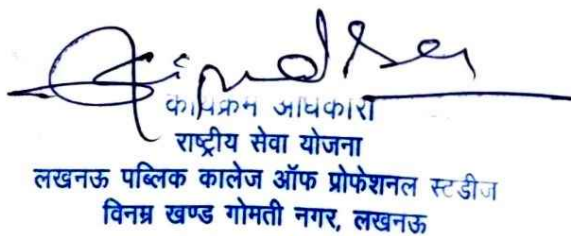 कार्यक्रम अधिकारी
राष्ट्रीय सेवा योजना
लखनऊ पब्लिक कालेज ऑफ प्रोफेशनल स्टडीज
विनम्र खण्ड गोमती नगर, लखनऊ